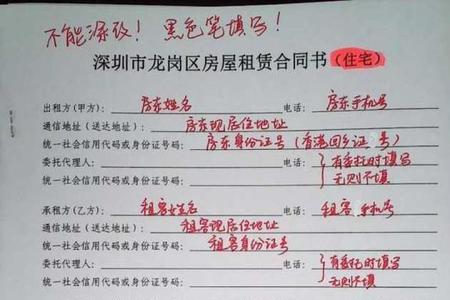 不能涂改！黑色笔填写！
深圳市龙岗区房屋租赁合同书(住宅)
出租方(甲方)：房东姓名 电话：房东手机号
通信地址(送达地址)：房东现居住地址
统一社会信用代码或身份证号码：房东身份证号(香港回乡证号)
委托代理人： 电话：有委托时填写
统一社会信用代码或身份证号码： 无则不填
承租方(乙方)：租客姓名 电话：租客手机号
通信地址(送达地址)：租客现居住地址
统一社会信用代码或身份证号码：租客身份证号
委托代理人： 电话：有委托时填写
统一社会信用代码或身份证号码： 无则不填